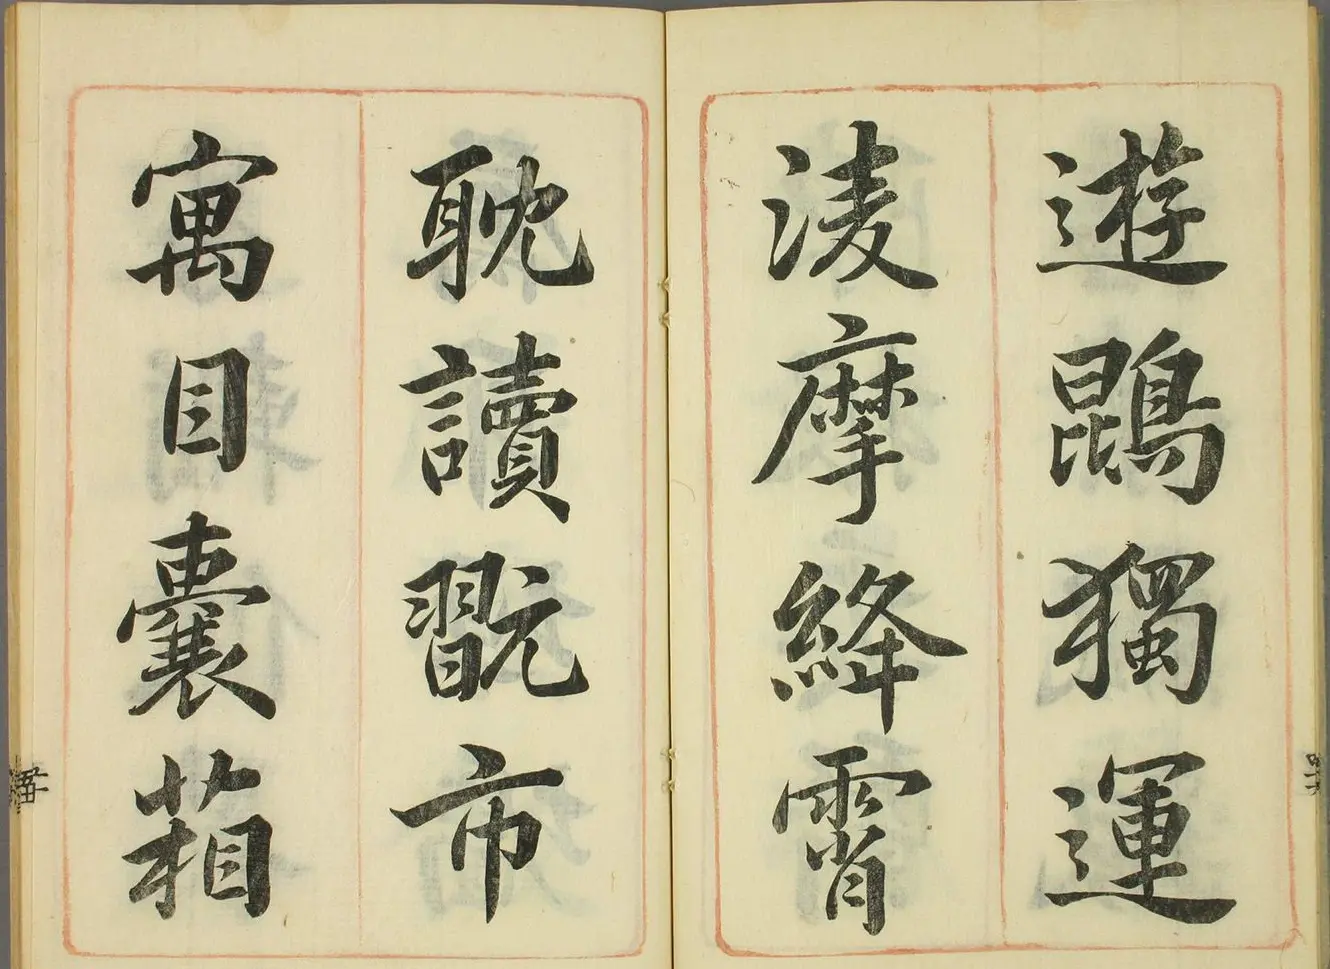 遊鵾獨運
淩摩絳霄
耽讀翫市
寓目囊葙